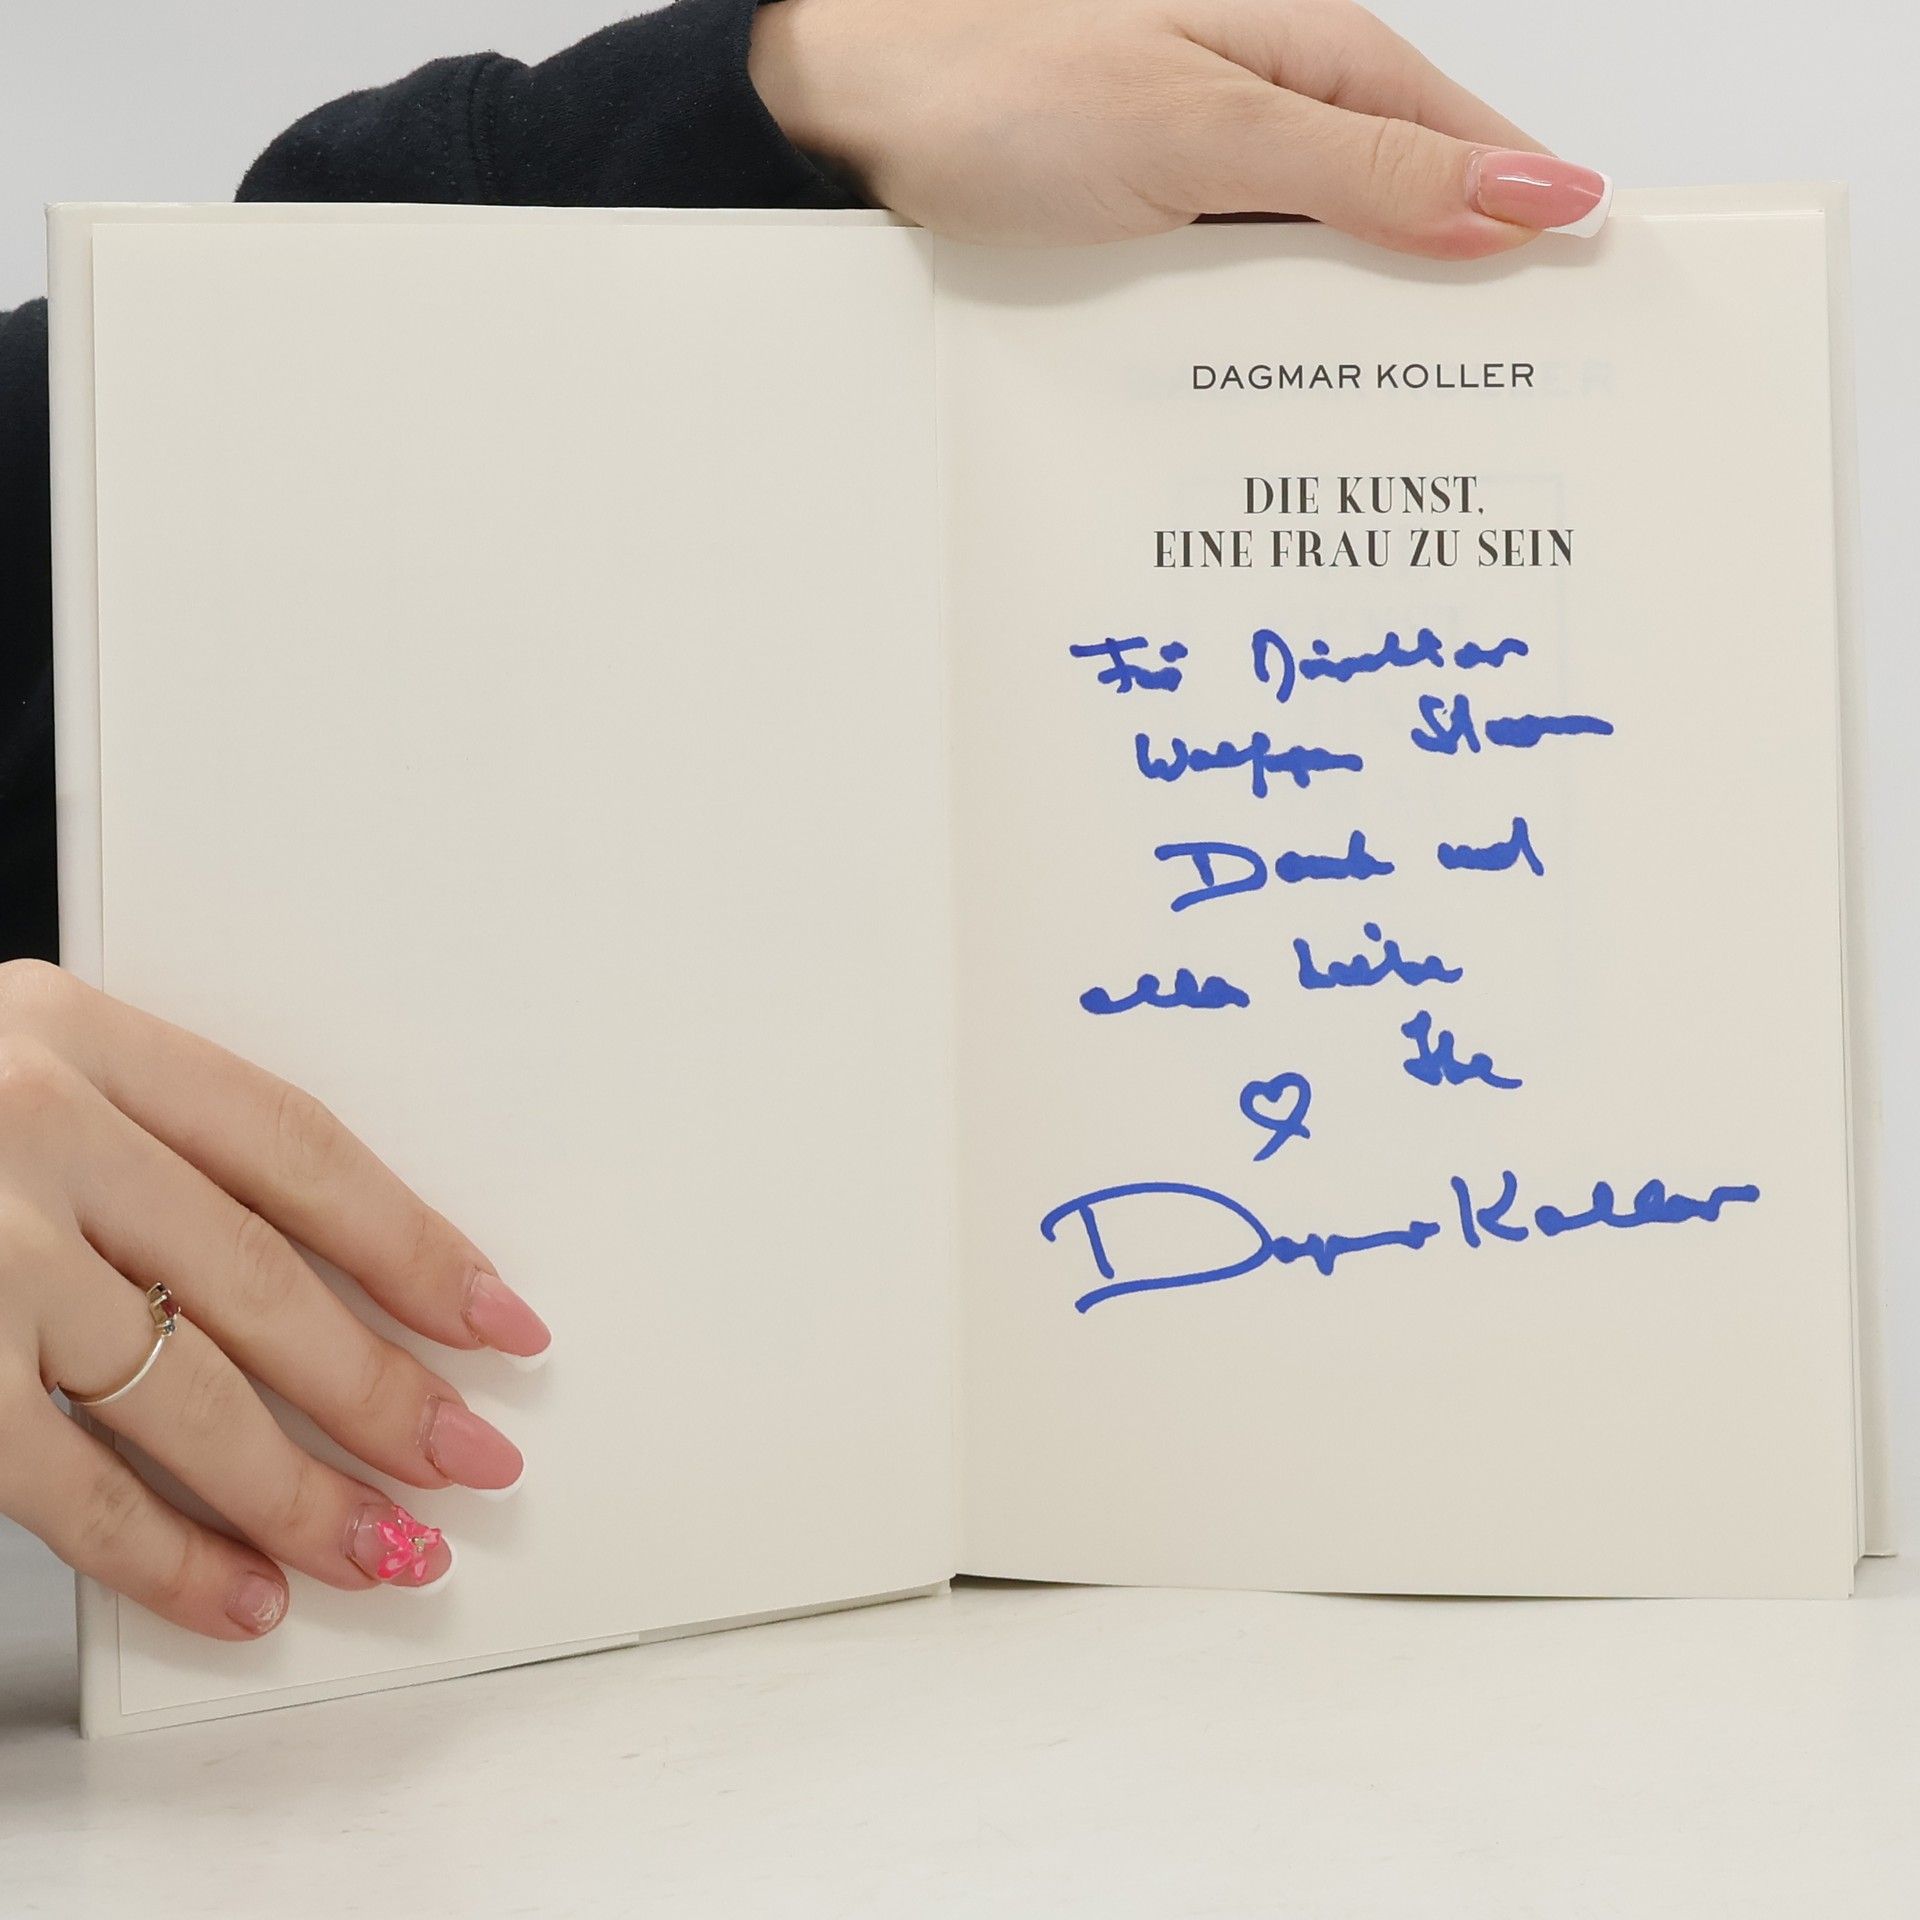 DAGMAR KOLLER
DIE KUNST,
EINE FRAU ZU SEIN
Für Direktor
Wolfgang
Dank und
alles Liebe
Ihre
Dagmar Koller